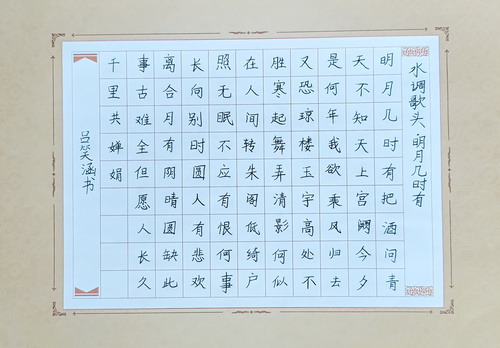 水调歌头 明月几时有
明月几时有把酒问青
天不知天上宫阙今夕
是何年我欲乘风归去
又恐琼楼玉宇高处不
胜寒起舞弄清影何似
在人间转朱阁低绮户
照无眠不应有恨何事
长向别时圆人有悲欢
离合月有阴晴圆缺此
事古难全但愿人长久
千里共婵娟
吕笑涵书